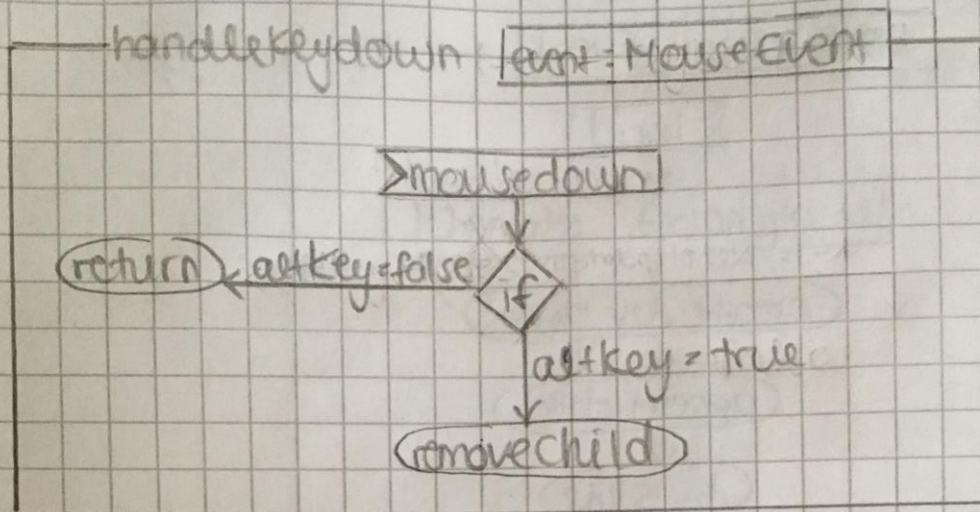 handlekeydown event: MouseEvent
>mousedown
return altkey=false if
altkey=true
removechild